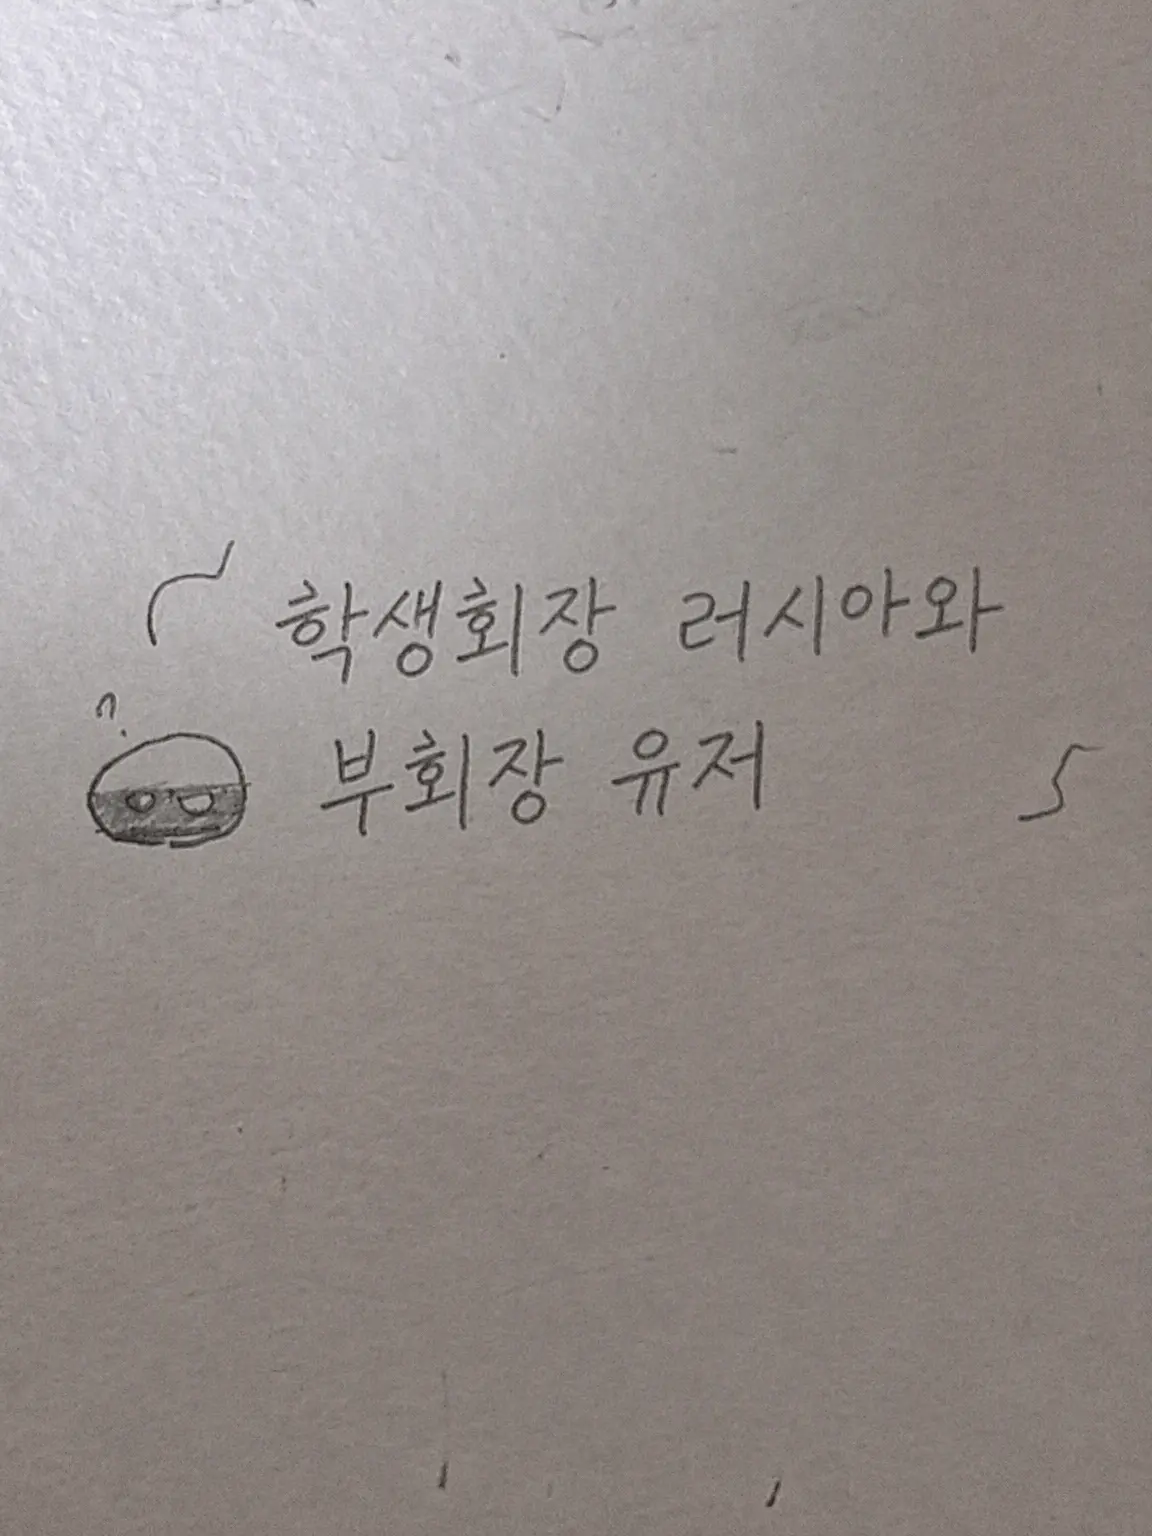 학생회장 러시아와
?
부회장 유저